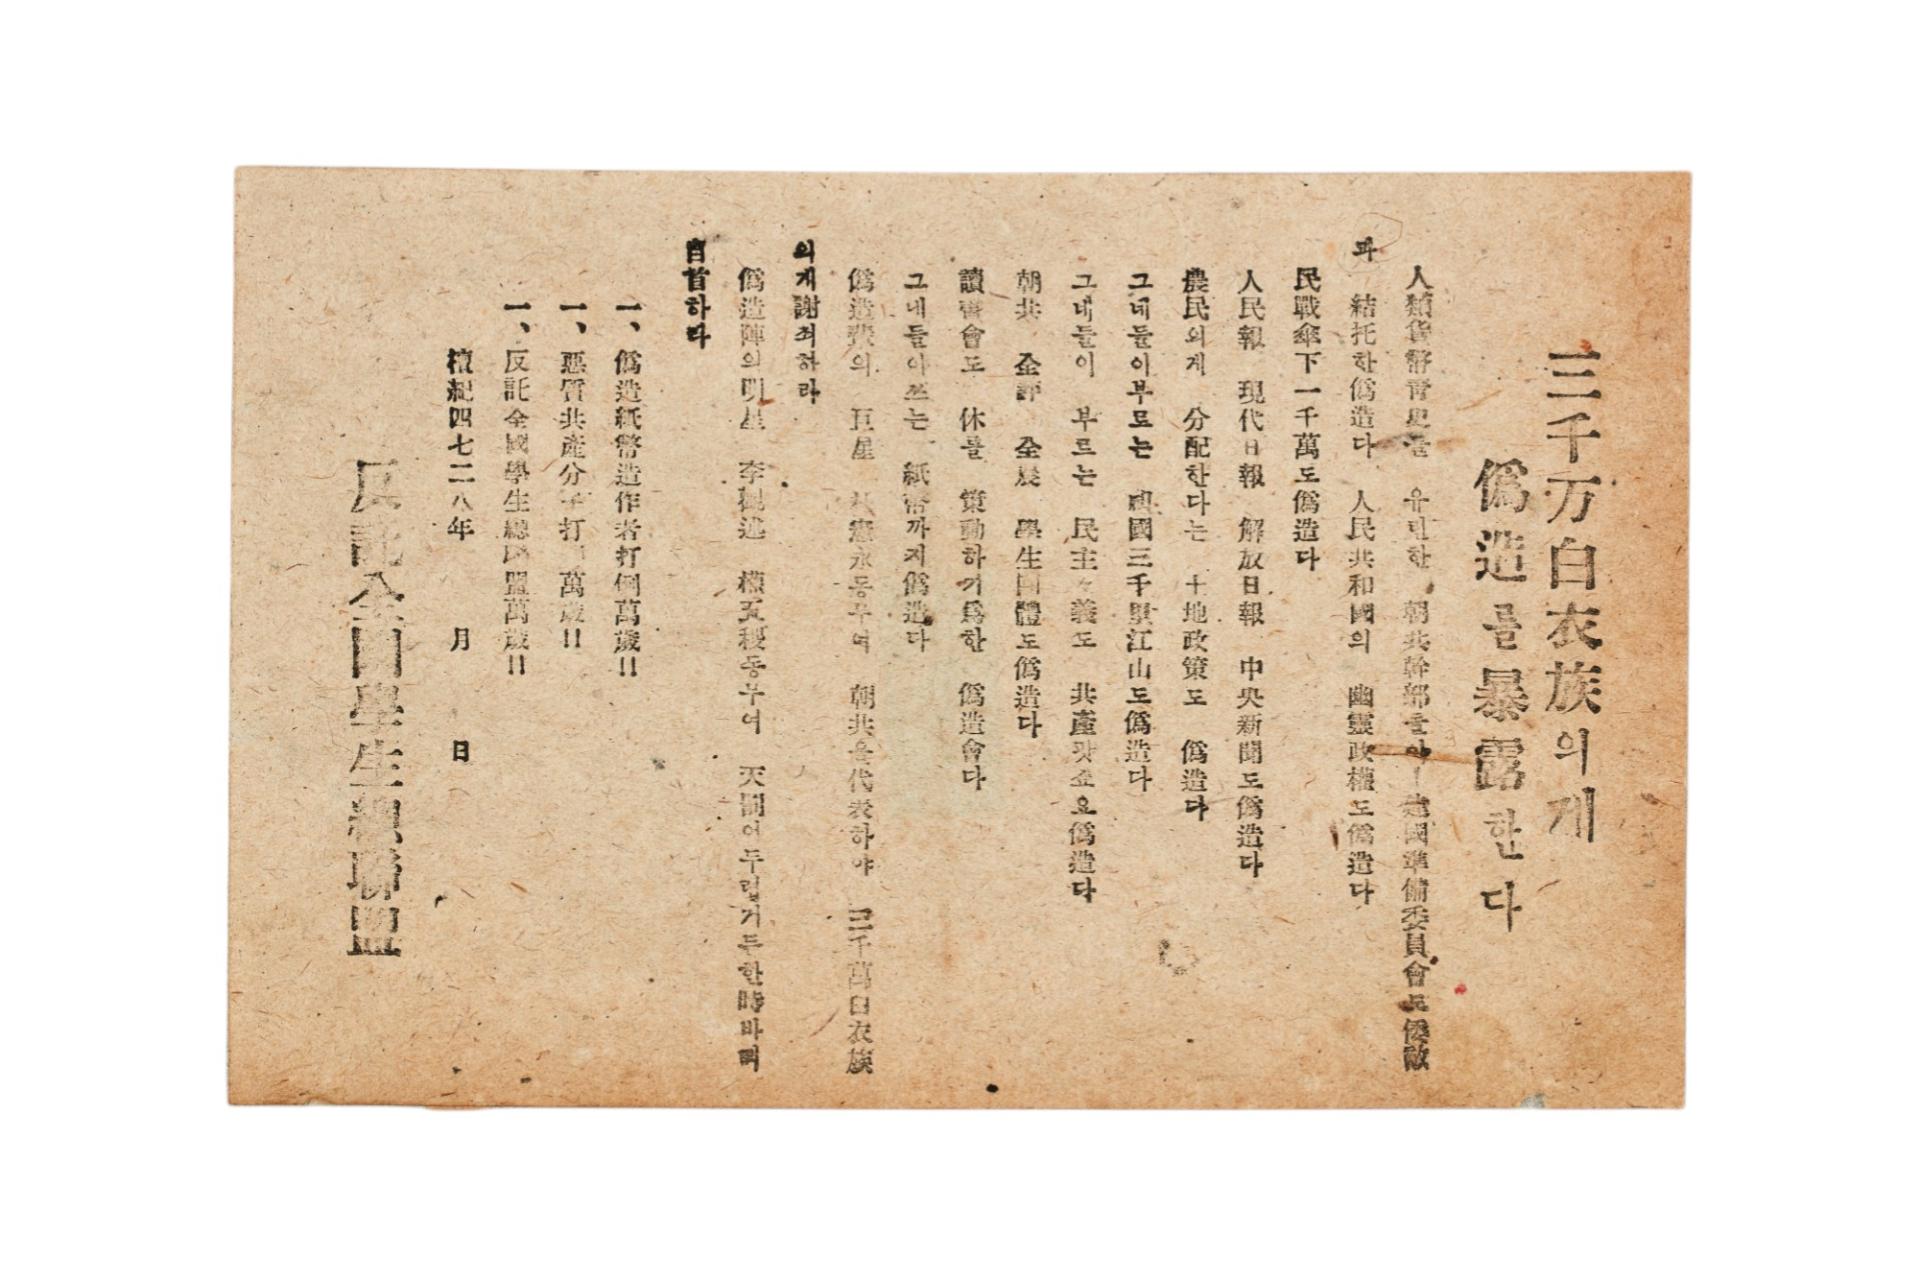 三千万白衣族의게
偽造를暴露한다
人類貨幣靑史를 유린한 朝共幹部들아 建國準備委員會도倭敵
과 結托한僞造다 人民共和國의 幽靈政權도僞造다
民戰傘下一千萬도僞造다
人民報 現代日報 解放日報 中央新聞도僞造다
農民의게 分配한다는 土地政策도 僞造다
그네들이부르는 祖國三千里江山도僞造다
그네들이 부르는 民主々義도 共產 僞造다
朝共 全評 全農 學生團體도僞造다
讀書會도 休를 策動하기爲한 僞造會다
그네들이쓰는 紙幣까지僞造다
僞造黨의 巨星 朴憲永동무여 朝共을代表하야 三千萬白衣族
의게謝죄하라
僞造陣의明星 李觀述 權五稷동무여 天罰이두렵거든한時바삐
自首하라
一、僞造紙幣造作者打倒萬歲!!
一、惡質共產分子打 萬歲!!
一、反託全國學生總聯盟萬歲!!
檀紀四七二八年 月 日
反託全國學生總聯盟